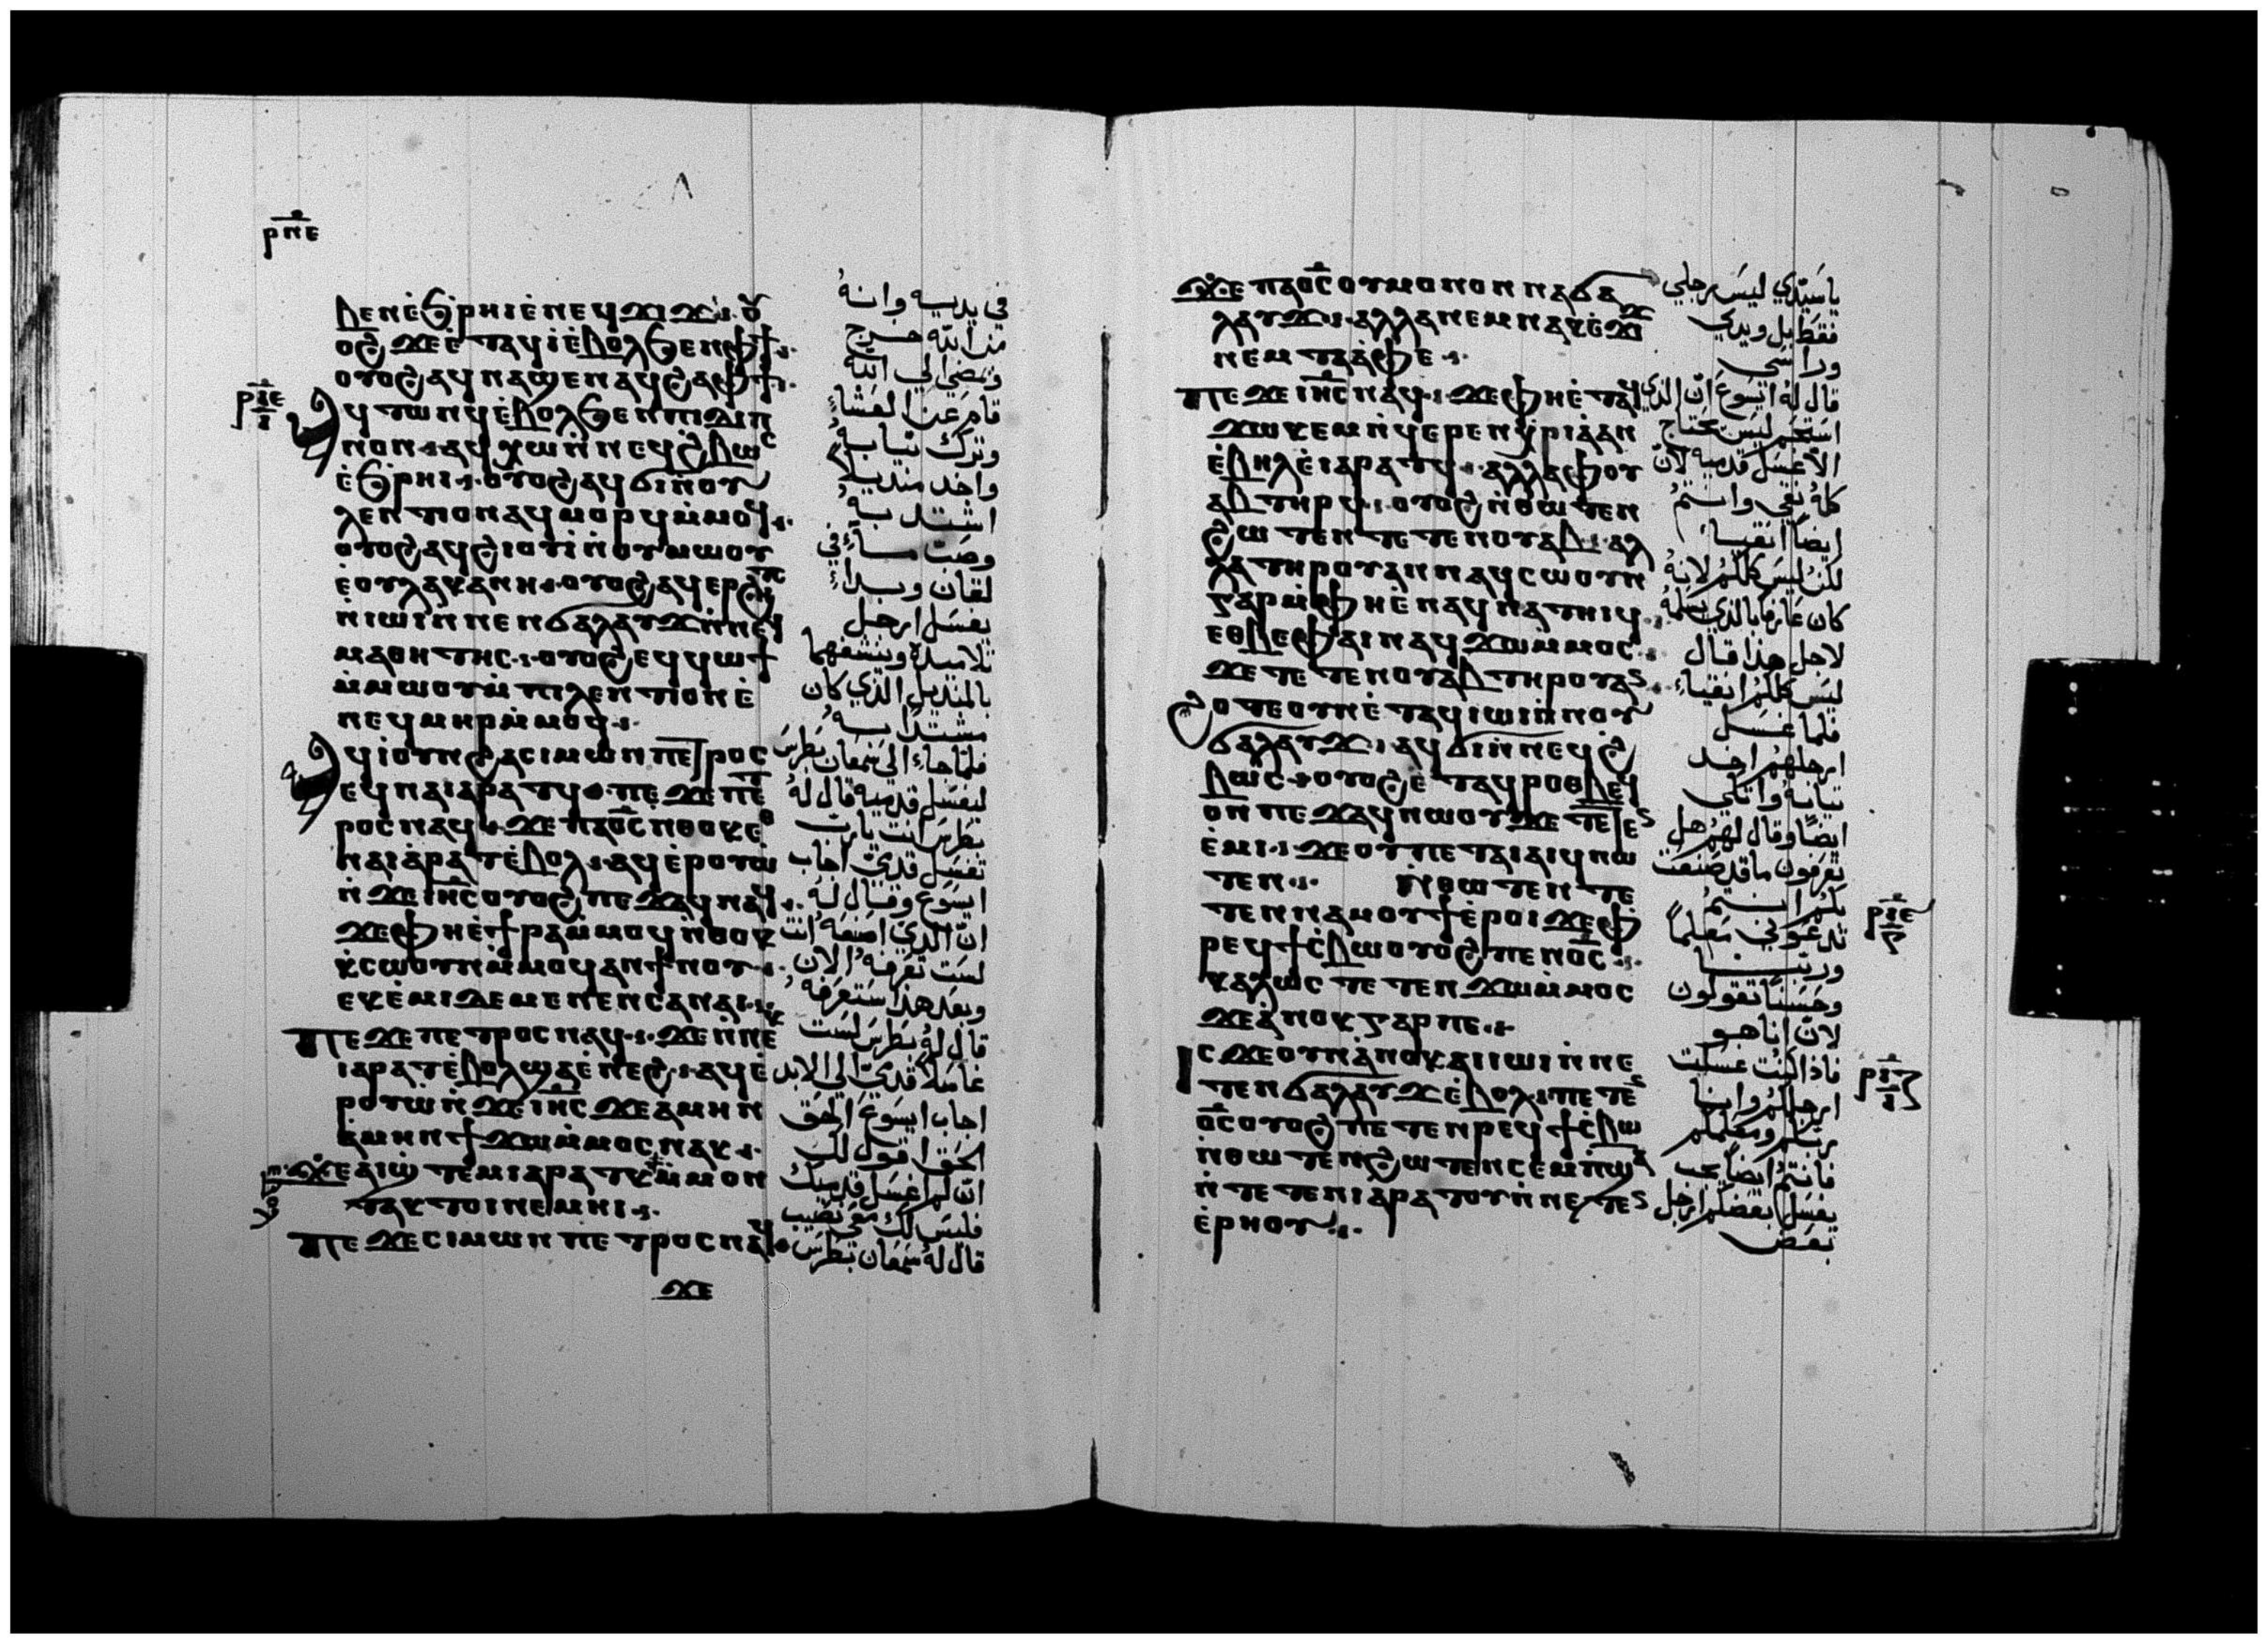 ⲣⲡⲉ
ϧⲉⲛ ⲉϧⲣⲏⲓ ⲉⲛⲉϥϫⲓϫ ⲟⲩ
ⲟϩ ϫⲉ ⲉⲧⲁϥⲓ ⲉⲃⲟⲗ ϧⲉⲛ ⲫϯ
ⲟⲩⲟϩ ⲁϥⲛⲁϣⲉⲛⲁϥ ϩⲁ ⲫϯ
ⲁϥⲧⲱⲛϥ ⲉⲃⲟⲗ ϧⲉⲛ ⲡⲓⲇⲓⲡ
ⲛⲟⲛ ⲁϥⲭⲱ ⲛⲛⲉϥϩⲃⲱⲥ
ⲉϧⲣⲏⲓ ⲟⲩⲟϩ ⲁϥϭⲓ ⲛⲟⲩ
ⲗⲉⲛⲧⲓⲟⲛ ⲁϥⲙⲟⲣϥ ⲙⲙⲟϥ
ⲟⲩⲟϩ ⲁϥϩⲓⲟⲩⲓ ⲛⲟⲩⲙⲱⲟⲩ
ⲉⲟⲩⲗⲁⲕⲁⲛⲏ ⲟⲩⲟϩ ⲁϥⲉⲣϩⲏⲧⲥ
ⲛⲓⲱⲓ ⲛⲛⲉⲛϭⲁⲗⲁⲩϫ ⲛⲛⲉϥ
ⲙⲁⲑⲏⲧⲏⲥ ⲟⲩⲟϩ ⲉϥϥⲱϯ
ⲙⲙⲱⲟⲩ ⲙⲡⲓⲗⲉⲛⲧⲓⲟⲛ ⲉ
ⲛⲉϥⲙⲏⲣ ⲙⲙⲟϥ
ⲁϥⲓ ⲟⲩⲛ ϩⲁ ⲥⲓⲙⲱⲛ ⲡⲉⲧⲣⲟⲥ
ⲉϥⲛⲁⲓⲁ ⲣⲁⲧϥ ⲡⲉϫⲉ ⲡⲉⲧ
ⲣⲟⲥ ⲛⲁϥ ϫⲉ ⲡⲁⲟⲥ ⲛⲑⲟⲕ ⲉⲑ
ⲛⲁⲓⲁ ⲣⲁⲧ ⲉⲃⲟⲗ ⲁϥⲉⲣⲟⲩⲱ
ⲛϫⲉ ⲓⲏⲥ ⲟⲩⲟϩ ⲡⲉϫⲁϥ ⲛⲁϥ
ϫⲉ ⲫⲏ ⲉϯⲣⲁ ⲙⲙⲟϥ ⲛⲑⲟⲕ
ⲕⲥⲱⲟⲩⲛ ⲙⲙⲟϥ ⲁⲛ ϯⲛⲟⲩ
ⲉⲕⲉⲙⲓ ⲇⲉ ⲙⲉⲛⲉⲛⲥⲁ ⲛⲁⲓ
ⲡⲉϫⲉ ⲡⲉⲧⲣⲟⲥ ⲛⲁϥ ϫⲉ ⲛⲛⲉⲕ
ⲓⲁ ⲣⲁⲧ ⲉⲃⲟⲗ ϣⲁ ⲉⲛⲉϩ ⲁϥⲉ
ⲣⲟⲩⲱ ⲛϫⲉ ⲓⲏⲥ ϫⲉ ⲁⲙⲏⲛ
ⲁⲙⲏⲛ ϯϫⲱ ⲙⲙⲟⲥ ⲛⲁⲕ
ϫⲉ ⲁⲓϣⲧⲉⲙⲓⲁ ⲣⲁⲧⲕ ⲙⲙⲟⲛ
ⲧⲁⲕ ⲧⲟⲓ ⲛⲉⲙⲏⲓ
ⲡⲉϫⲉ ⲥⲓⲙⲱⲛ ⲡⲉⲧⲣⲟⲥ ⲛⲁϥ
ϫⲉ
في يديه وانه
من الله خرج
ويمضي الي الله
قام عن العشاء
وترك ثيابه
واخذ منديلاً
اشتد به
وصب ماءً في
لقان وبداء
يغسل ارجل
تلاميذه وينشفهما
بالمنديل الذي كان
مشتداً به
فلما جاء الي سمعان بطرس
ليغسل قدميه قال له
بطرس انت يارب
تغسل قدمي اجاب
ايسوع وقال له
ان الذي اصنعه انت
لست تعرفه الان
وبعد هذا ستعرفه
قال له بطرس لست
غاسلاً قدمي الي الابد
اجاب ايسوع الحق
الحق اقول لك
ان لم اغسل قدميك
فليس لك معي نصيب
قال له سمعان بطرس
ϫⲉ ⲡⲁⲟⲥ ⲟⲩ ⲙⲟⲛⲟⲛ ⲛⲁϭⲁ
ⲗⲁⲩϫ ⲁⲗⲗⲁ ⲛⲉⲙ ⲛⲁⲕⲉϫⲓϫ
ⲛⲉⲙ ⲧⲁⲁⲫⲉ
ⲡⲉϫⲉ ⲓⲏⲥ ⲛⲁϥ ϫⲉ ⲫⲏ ⲉⲧⲁϥ
ϫⲱⲕⲉⲙ ⲛϥⲉⲣⲉⲛⲭⲣⲓⲁ ⲁⲛ
ⲉⲃⲏⲗ ⲉⲓⲁ ⲣⲁⲧϥ ⲁⲗⲗⲁ ϥⲟⲩ
ⲁⲃ ⲧⲏⲣϥ ⲟⲩⲟϩ ⲛⲑⲱⲧⲉⲛ
ϩⲱⲧⲉⲛ ⲧⲉⲧⲉⲛⲟⲩⲁⲃ ⲁⲗ
ⲗⲁ ⲧⲏⲣⲟⲩ ⲁⲛ ⲛⲁϥⲥⲱⲟⲩⲛ
ⲅⲁⲣ ⲙⲫⲏ ⲉⲛⲁϥⲛⲁⲧⲏⲓϥ
ⲉⲑⲃⲉ ⲫⲁⲓ ⲛⲁϥϫⲱ ⲙⲙⲟⲥ
ϫⲉ ⲧⲉⲧⲉⲛⲟⲩⲁⲃ ⲧⲏⲣⲟⲩ ⲁⲛ
ϩⲟⲧⲉ ⲟⲩⲛ ⲉⲧⲁϥⲓⲱⲓ ⲛⲛⲟⲩ
ϭⲁⲗⲁⲩϫ ⲁϥϭⲓ ⲛⲛⲉϥϩ
ⲃⲱⲥ ⲟⲩⲟϩ ⲉⲧⲁϥⲣⲟⲑⲃⲉϥ
ⲟⲛ ⲡⲉϫⲁϥ ⲛⲱⲟⲩ ϫⲉ ⲧⲉⲧⲉⲛ
ⲉⲙⲓ ϫⲉ ⲟⲩ ⲡⲉⲧⲁⲓⲁⲓϥ ⲛⲱ
ⲧⲉⲛ ⲛⲑⲱⲧⲉⲛ ⲧⲉ
ⲧⲉⲛⲛⲁⲙⲟⲩϯ ⲉⲣⲟⲓ ϫⲉ ⲫ
ⲣⲉϥϯⲥⲃⲱ ⲟⲩⲟϩ ⲡⲉⲛⲟⲥ
ⲕⲁⲗⲱⲥ ⲧⲉⲧⲉⲛϫⲱ ⲙⲙⲟⲥ
ϫⲉ ⲁⲛⲟⲕ ⲅⲁⲣ ⲡⲉ
ⲓⲥϫⲉ ⲟⲩⲛ ⲁⲛⲟⲕ ⲁⲓⲓⲱⲓ ⲛⲛⲉ
ⲧⲉⲛϭⲁⲗⲁⲩϫ ⲉⲃⲟⲗ ⲡⲉⲧⲉⲛ
ⲟⲥ ⲟⲩⲟϩ ⲡⲉⲧⲉⲛⲣⲉϥϯⲥⲃⲱ
ⲛⲑⲱⲧⲉⲛ ϩⲱⲧⲉⲛ ⲥⲉⲙⲡϣⲁ
ⲛⲧⲉⲧⲉⲛⲓⲁ ⲣⲁⲧⲟⲩ ⲛⲛⲉⲧⲉⲛ
ⲉⲣⲏⲟⲩ
ياسيدي ليس رجلي
فقط بل ويدي
وراسي
قال له ايسوع ان الذي
استحم ليس يحتاج
الا غسل قدميه لان
كله نقي وانتم
ايضاً انقياء
لكن ليس كلكم لانه
كان عارفا بالذي يسلمه
لاجل هذا قال
ليس كلكم انقياء
فلما غسل
ارجلهم اخذ
ثيابه واتكي
ايضاً وقال لهم هل
تعرفون ما قد صنعت
بكم انتم
تدعوني معلماً
ورباً
وحسناً تقولون
لان انا هو
فاذا كنت غسلت
ارجلكم وانا
ربكم ومعلمكم
فانتم ايضاً يجب
يغسل بعضكم ارجل
بعض